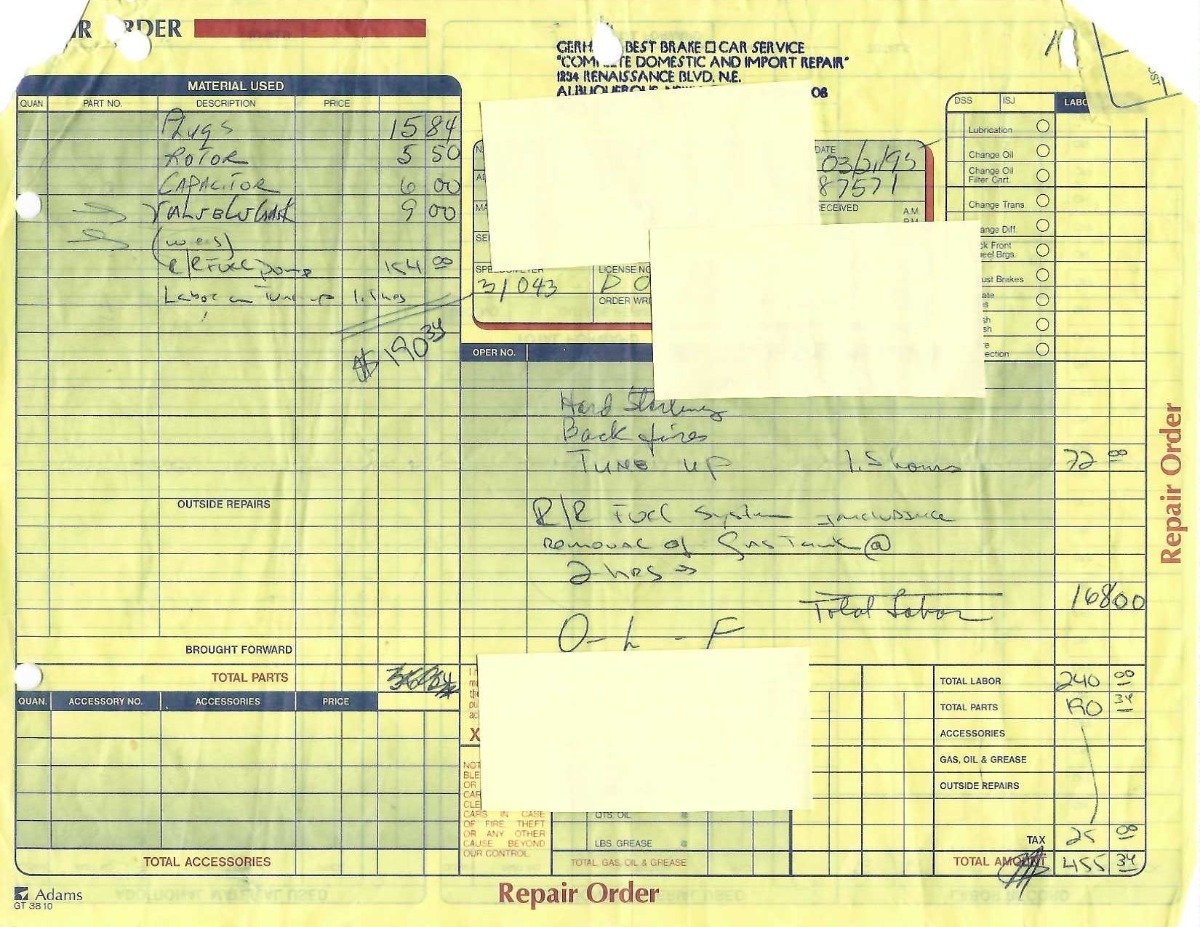 IR ORDER
GERH BEST BRAKE □ CAR SERVICE
"COMPLETE DOMESTIC AND IMPORT REPAIR"
1234 RENAISSANCE BLVD. N.E.
ALBUQUERQUE, NEW 08
MATERIAL USED
QUAN PART NO. DESCRIPTION PRICE
Plugs 15 84
ROTOR 5 50
CAPACITOR 6 00
9 00
R/R Fuel Pump 154 00
Labor on Tune up 1.5 hrs
$190 34
DATE
87571
RECEIVED A.M.
31043
LICENSE NO
ORDER WRI
DSS ISJ LABO
Lubrication
Change Oil
Change Oil
Filter Cart.
Change Trans.
ange Diff.
ck Front
eel Brgs.
ust Brakes
ate
sh
ection
OPER NO.
Hard Starting
Back fires
TUNE UP 1.5 hours 72 00
R/R Fuel System
Removal of Gas Tank @
2 hrs
Total Labor 168 00
O - L - F
OUTSIDE REPAIRS
BROUGHT FORWARD
TOTAL PARTS
QUAN. ACCESSORY NO. ACCESSORIES PRICE
TOTAL ACCESSORIES
X
NOT
BLE
OR
CAR
CLE
CARS IN CASE
OF FIRE, THEFT
OR ANY OTHER
CAUSE BEYOND
OUR CONTROL.
QTS. OIL @
LBS. GREASE @
TOTAL GAS, OIL & GREASE
TOTAL LABOR 240 00
TOTAL PARTS 190 34
ACCESSORIES
GAS, OIL & GREASE
OUTSIDE REPAIRS
TAX 25 00
TOTAL AMOUNT 455 34
Repair Order
Repair Order
Adams
GT 3810